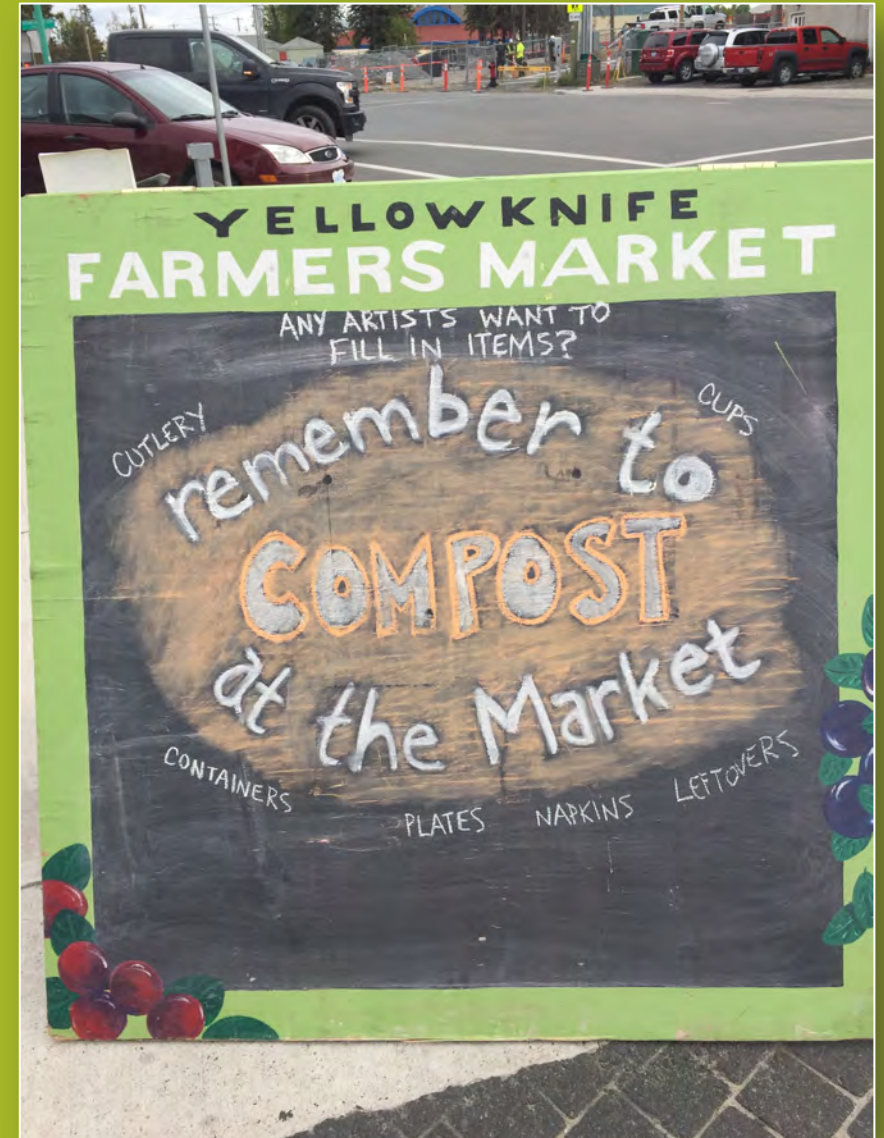 YELLOWKNIFE
FARMERS MARKET
ANY ARTISTS WANT TO
FILL IN ITEMS?
CUTLERY
CUPS
remember to
COMPOST
at the Market
CONTAINERS
PLATES
NAPKINS
LEFTOVERS